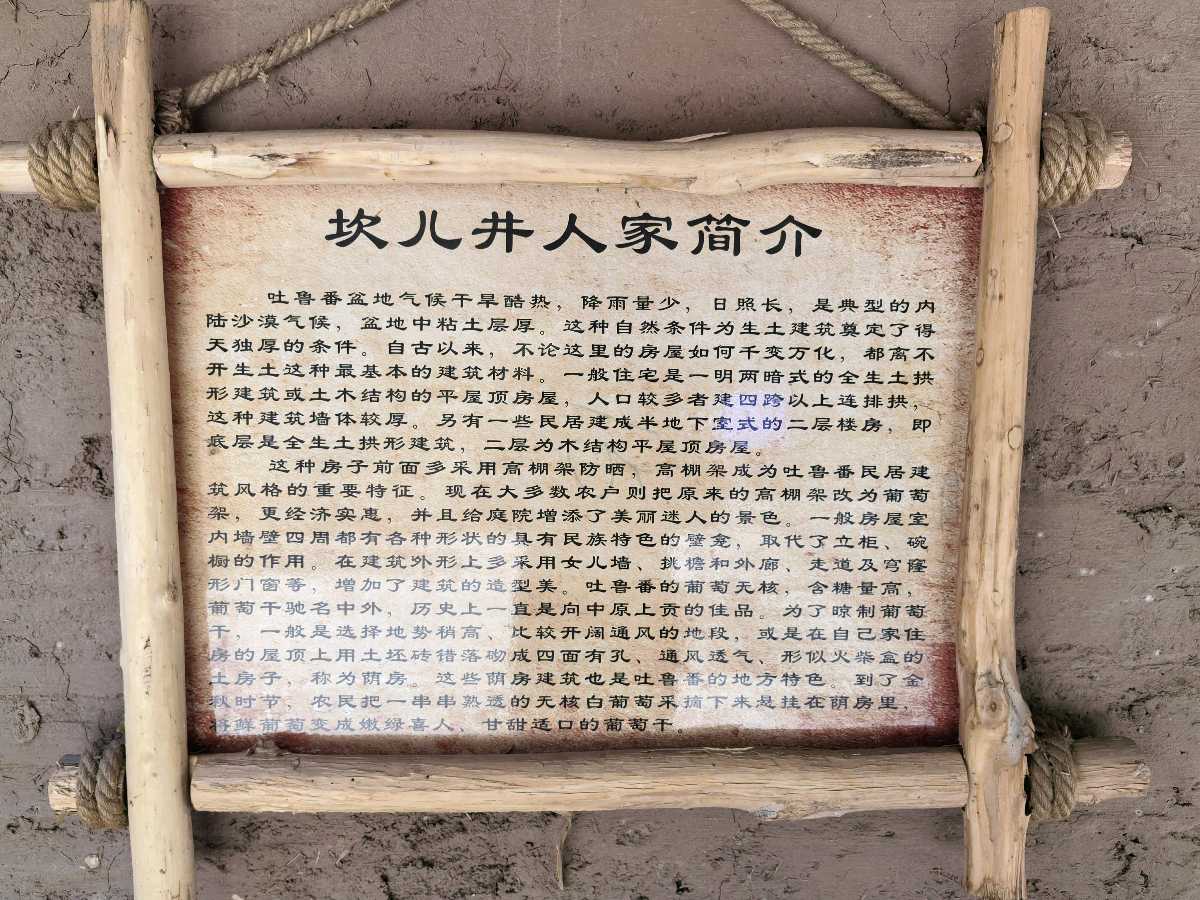 坎儿井人家简介
吐鲁番盆地气候干旱酷热，降雨量少，日照长，是典型的内
陆沙漠气候，盆地中粘土层厚。这种自然条件为生土建筑奠定了得
天独厚的条件。自古以来，不论这里的房屋如何千变万化，都离不
开生土这种最基本的建筑材料。一般住宅是一明两暗式的全生土拱
形建筑或土木结构的平屋顶房屋，人口较多者建四跨以上连排拱，
这种建筑墙体较厚。另有一些民居建成半地下室式的二层楼房，即
底层是全生土拱形建筑，二层为木结构平屋顶房屋。
这种房子前面多采用高棚架防晒，高棚架成为吐鲁番民居建
筑风格的重要特征。现在大多数农户则把原来的高棚架改为葡萄
架，更经济实惠，并且给庭院增添了美丽迷人的景色。一般房屋室
内墙壁四周都有各种形状的具有民族特色的壁龛，取代了立柜、碗
橱的作用。在建筑外形上多采用女儿墙、挑檐和外廊、走道及穹隆
形门窗等，增加了建筑的造型美。吐鲁番的葡萄无核，含糖量高，
葡萄干驰名中外，历史上一直是向中原上贡的佳品。为了晾制葡萄
干，一般是选择地势稍高、比较开阔通风的地段，或是在自己家住
房的屋顶上用土坯砖错落砌成四面有孔、通风透气、形似火柴盒的
土房子，称为荫房。这些荫房建筑也是吐鲁番的地方特色。到了金
秋时节，农民把一串串熟透的无核白葡萄采摘下来悬挂在荫房里，
将鲜葡萄变成嫩绿喜人、甘甜适口的葡萄干。